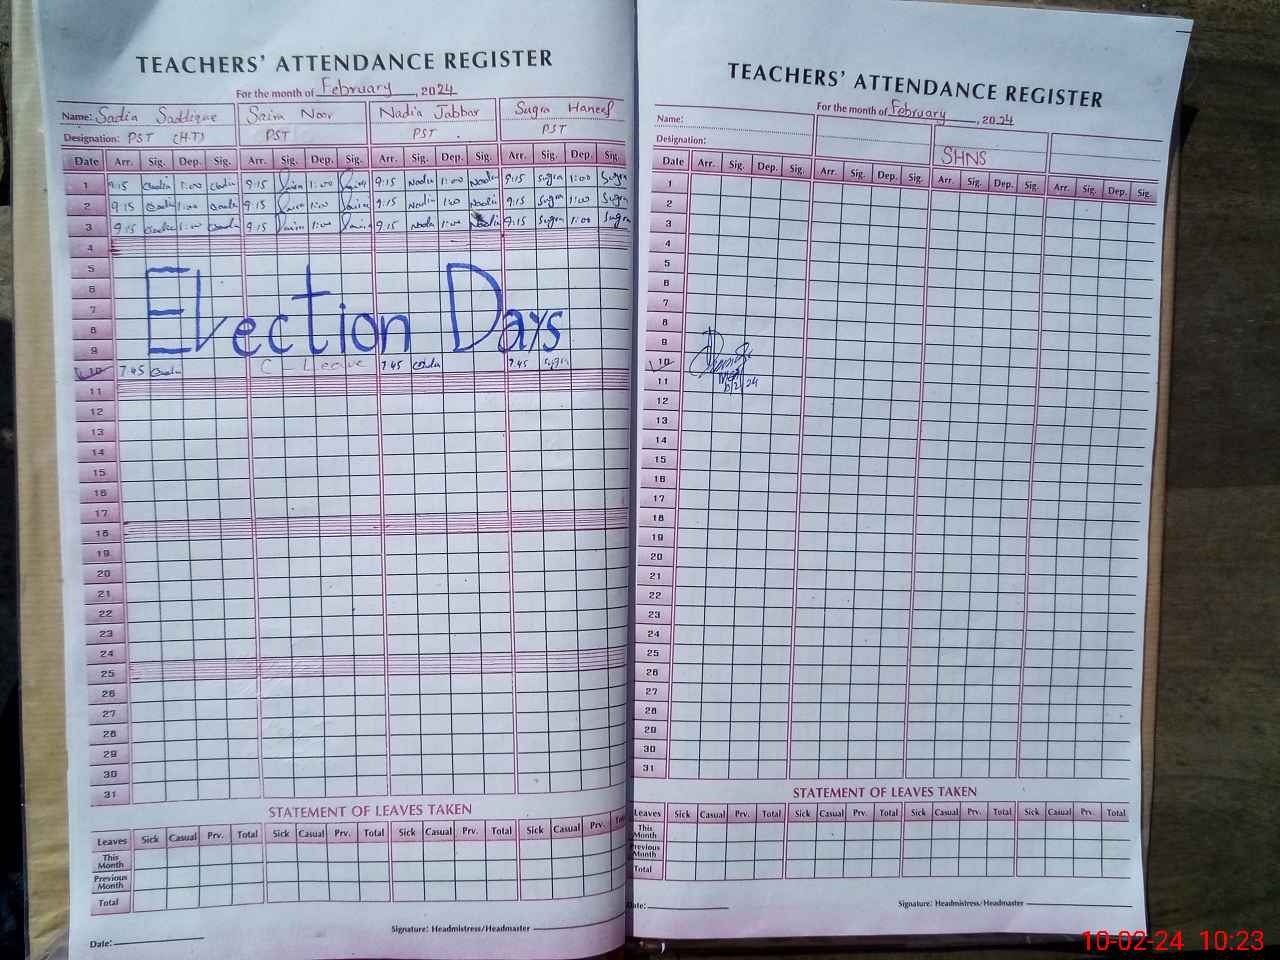 TEACHERS' ATTENDANCE REGISTER
For the month of February, 2024
Name: Sadia Saddique Saira Noor Nadia Jabbar Sugra Haneef
Designation: PST (H.T) PST PST PST
Date Arr. Sig. Dep. Sig. Arr. Sig. Dep. Sig. Arr. Sig. Dep. Sig. Arr. Sig. Dep. Sig.
1 9:15 Sadia 1:00 Sadia 9:15 Saira 1:00 Saira 9:15 Nadia 1:00 Nadia 9:15 Sugra 1:00 Sugra
2 9:15 Sadia 1:00 Sadia 9:15 Saira 1:00 Saira 9:15 Nadia 1:00 Nadia 9:15 Sugra 1:00 Sugra
3 9:15 Sadia 1:00 Sadia 9:15 Saira 1:00 Saira 9:15 Nadia 1:00 Nadia 9:15 Sugra 1:00 Sugra
4
5
6
7
Election Days
8
9
10 7:45 Sadia C-Leave 7:45 7:45 Sugra
11
12
13
14
15
16
17
18
19
20
21
22
23
24
25
26
27
28
29
30
31
STATEMENT OF LEAVES TAKEN
Leaves Sick Casual Prv. Total Sick Casual Prv. Total Sick Casual Prv. Total Sick Casual Prv. Total
This Month
Previous Month
Total
Signature: Headmistress/Headmaster
Date:
TEACHERS' ATTENDANCE REGISTER
For the month of February, 2024
Name:
Designation:
SHNS
Date Arr. Sig. Dep. Sig. Arr. Sig. Dep. Sig. Arr. Sig. Dep. Sig. Arr. Sig. Dep. Sig.
1
2
3
4
5
6
7
8
9
10
11
12
13
14
15
16
17
18
19
20
21
22
23
24
25
26
27
28
29
30
31
STATEMENT OF LEAVES TAKEN
Leaves Sick Casual Prv. Total Sick Casual Prv. Total Sick Casual Prv. Total Sick Casual Prv. Total
This Month
Previous Month
Total
Date:
Signature: Headmistress/Headmaster
10-02-24 10:23